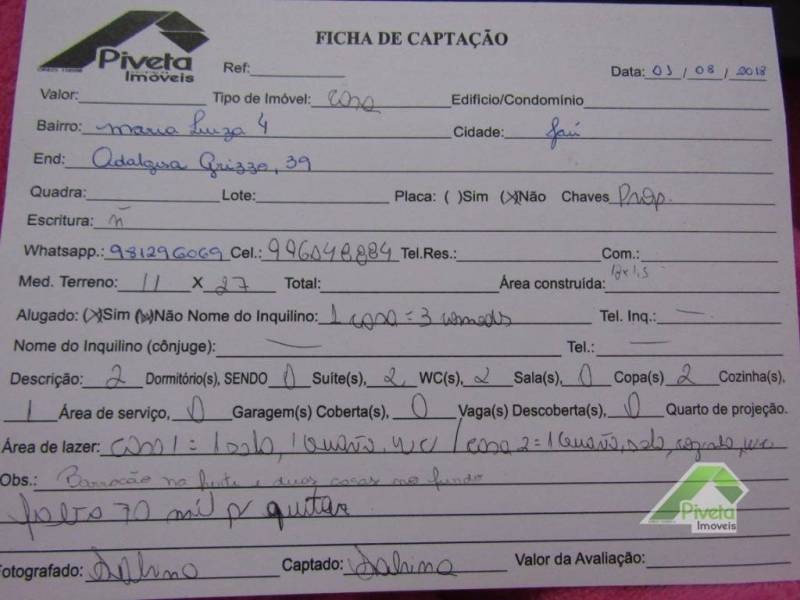 Piveta
Imóveis
FICHA DE CAPTAÇÃO
Ref: Data: 03 / 08 / 2018
Valor: Tipo de Imóvel: casa Edificio/Condomínio
Bairro: Maria Luiza 4 Cidade: Jaú
End: Adalgisa Grizzo, 39
Quadra: Lote: Placa: ( )Sim (X)Não Chaves Prop.
Escritura: ñ
Whatsapp.: 981296069 Cel.: 996048884 Tel.Res.: Com.:
Med. Terreno: 11 X 27 Total: Área construída:
Alugado: (X)Sim (X)Não Nome do Inquilino: 1 casa = 3 comodos Tel. Inq.: —
Nome do Inquilino (cônjuge): — Tel.: —
Descrição: 2 Dormitório(s), SENDO 0 Suíte(s), 2 WC(s), 2 Sala(s), 0 Copa(s) 2 Cozinha(s),
1 Área de serviço, 0 Garagem(s) Coberta(s), 0 Vaga(s) Descoberta(s), 0 Quarto de projeção.
Área de lazer: casa 1 = 1 sala, 1 quarto, wc / casa 2 = 1 quarto, sala, cozinha, wc
Obs.: Barracão na frente e duas casas no fundo
falta 70 mil p/ quitar
Piveta
Imóveis
Fotografado: Sabina Captado: Sabina Valor da Avaliação: